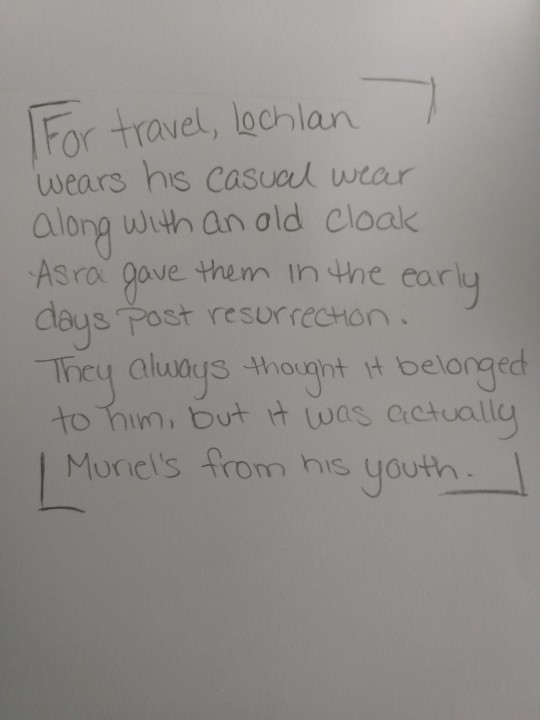 For travel, Lochlan
wears his casual wear
along with an old cloak
Asra gave them in the early
days post resurrection.
They always thought it belonged
to him, but it was actually
Muriel's from his youth.